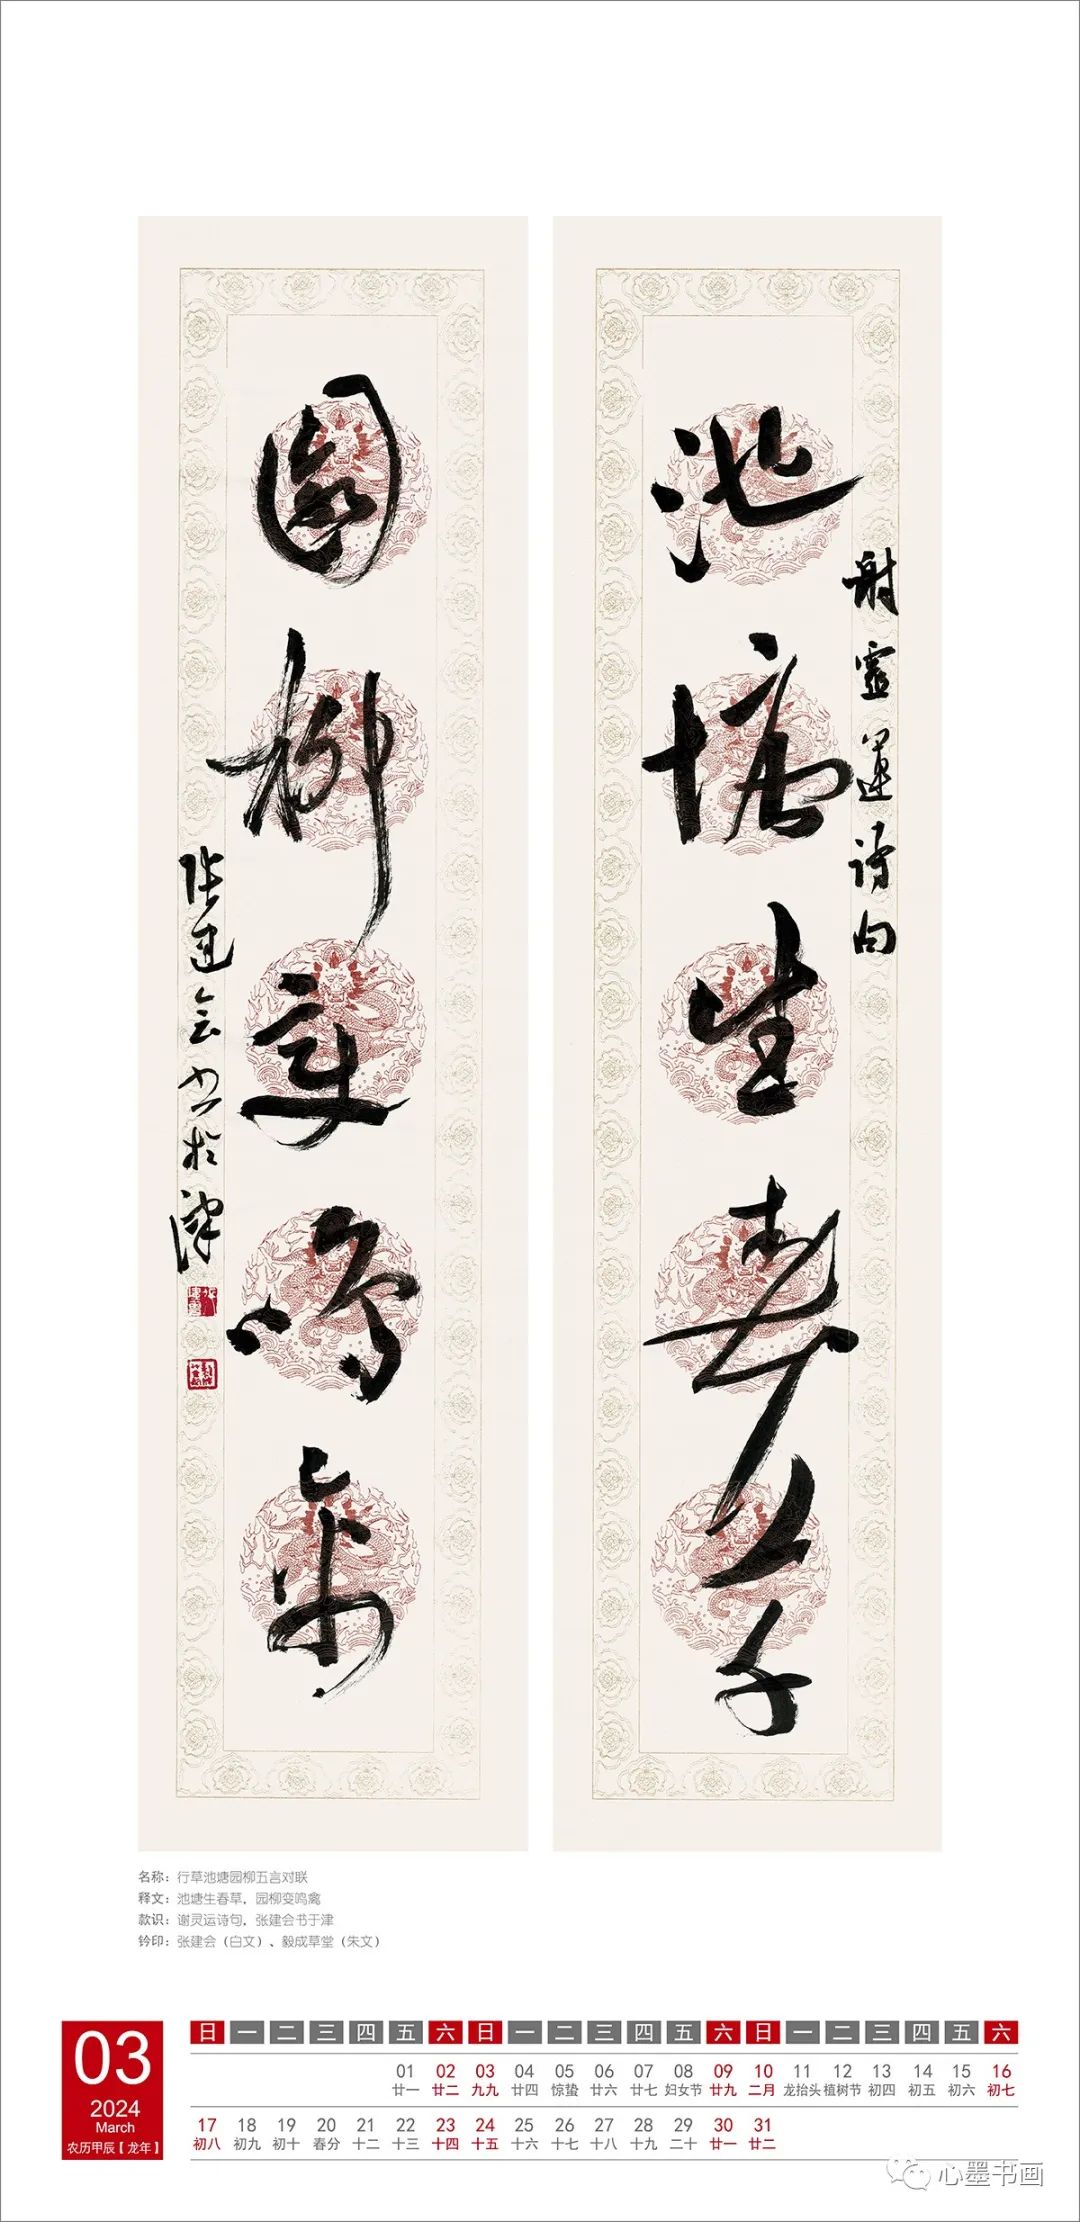 池塘生春草
谢灵运诗句
园柳变鸣禽
张建会书于津
名称：行草池塘园柳五言对联
释文：池塘生春草，园柳变鸣禽
款识：谢灵运诗句，张建会书于津
钤印：张建会（白文）、毅成草堂（朱文）
03
2024
March
农历甲辰【龙年】
日 一 二 三 四 五 六 日 一 二 三 四 五 六 日 一 二 三 四 五 六
01 02 03 04 05 06 07 08 09 10 11 12 13 14 15 16
廿一 廿二 九九 廿四 惊蛰 廿六 廿七 妇女节 廿九 二月 龙抬头 植树节 初四 初五 初六 初七
17 18 19 20 21 22 23 24 25 26 27 28 29 30 31
初八 初九 初十 春分 十二 十三 十四 十五 十六 十七 十八 十九 二十 廿一 廿二
心墨书画